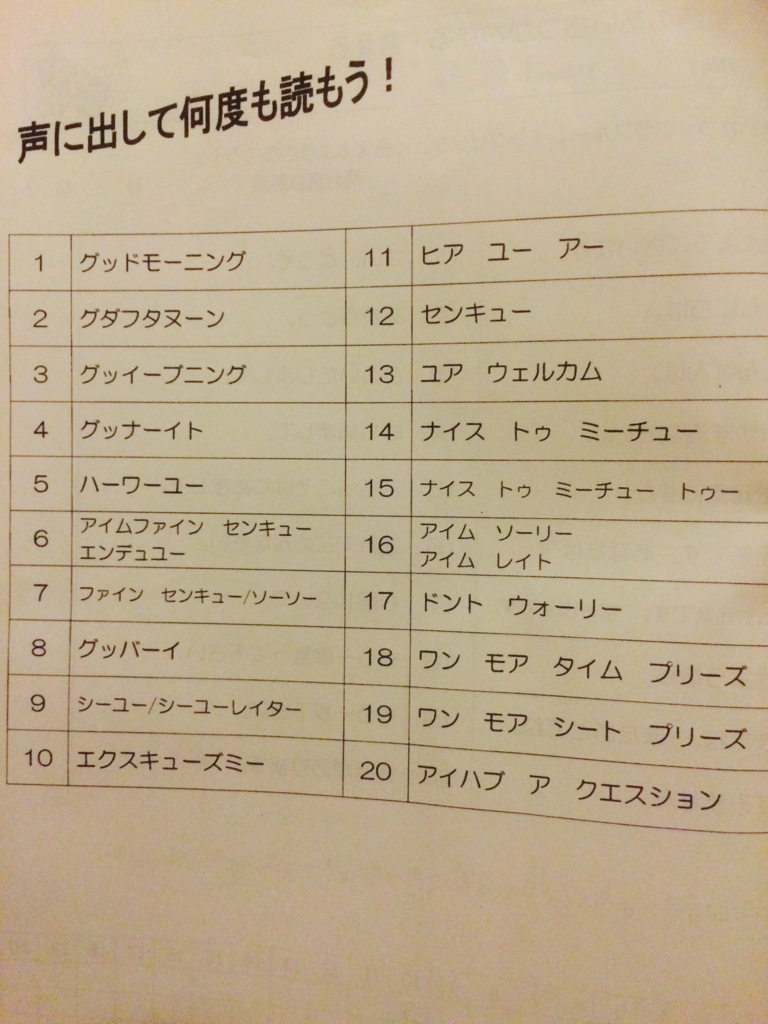 声に出して何度も読もう!
1 グッドモーニング
2 グダフタヌーン
3 グッイーブニング
4 グッナーイト
5 ハーワーユー
6 アイムファイン センキュー
エンデュユー
7 ファイン センキュー/ソーソー
8 グッバーイ
9 シーユー/シーユーレイター
10 エクスキューズミー
11 ヒア ユー アー
12 センキュー
13 ユア ウェルカム
14 ナイス トゥ ミーチュー
15 ナイス トゥ ミーチュー トゥー
16 アイム ソーリー
アイム レイト
17 ドント ウォーリー
18 ワン モア タイム プリーズ
19 ワン モア シート プリーズ
20 アイハブ ア クエスション